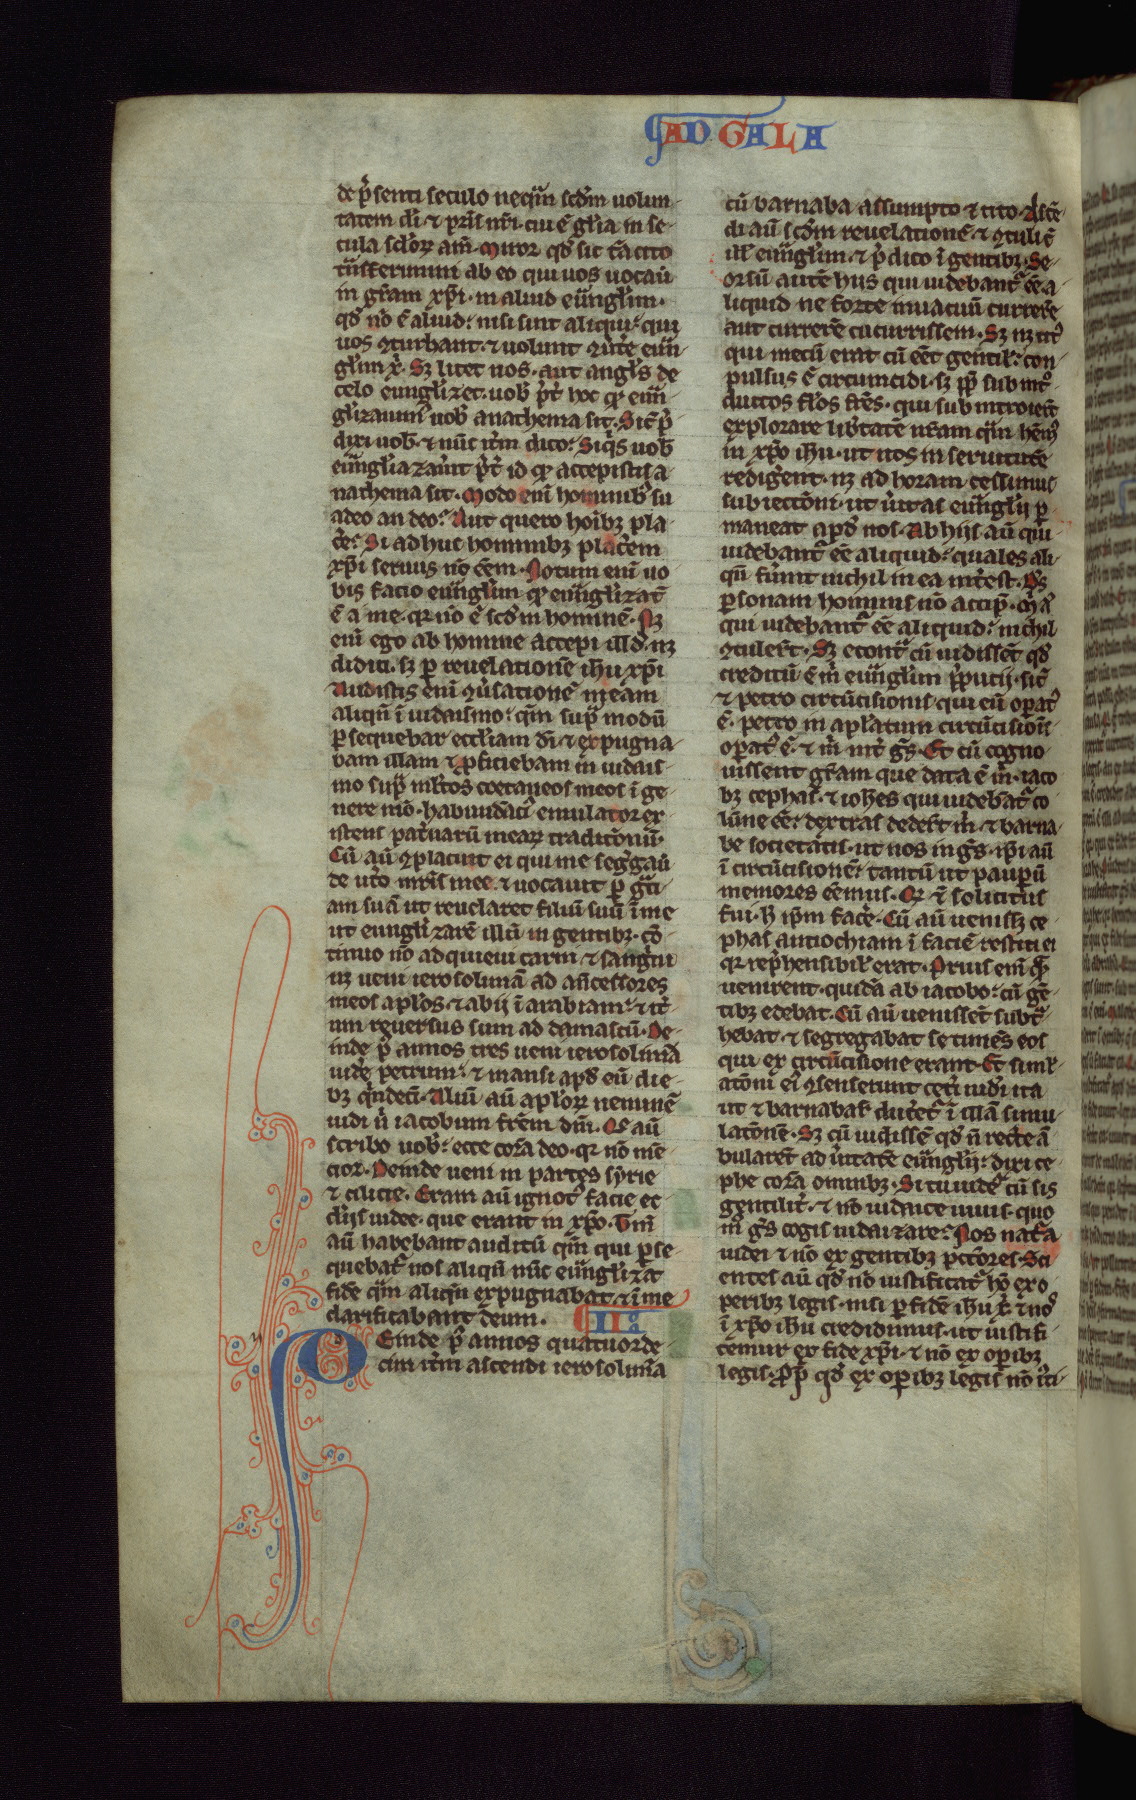 AD GALA
de p̄senti seculo neq̄m scd̄m uolun
tatem dī ⁊ pr̄is nr̄i cui ē gl̄ia in se
cula scl̄oꝝ am̄. Miror qd̄ sic tā cito
tn̄sferimini ab eo qui uos uocau̇
in gr̄am xp̄i. in aliud euu̇ngl̄im.
qd̄ nō ē aliud. nisi sunt aliqui. qui
uos ꝯturbant. ⁊ uolunt ꝯu̇te eun̄
gl̄im x̄. Sꝫ licet nos. aut angl̄s de
celo eungl̄izet. uob̄ p̄t hoc qꝫ eun̄
gl̄izauim᷒ uob̄ anathema sit. Sic̄ p̄
dixi uob̄. ⁊ nūc itm̄ dico. Siq̇s uob̄
euu̇ngl̄izau̇it p̄t id qꝫ accepistis a
nathema sit. Modo enī hominib᷒ su
adeo an deo. Aut quero hoībꝫ pla
c̄e. Si adhuc hominibꝫ placem
xp̄i seruus nō eēm. Notum enī uo
bis facio euu̇ngl̄im qꝫ euu̇ngl̄izat̄
ē a me. qꝛ nō ē scd̄m hominē. Nꝫ
enī ego ab homine accepi illd̄. nꝫ
didici. sꝫ ꝑ reuelationē ihu xp̄i
Audistis enī ꝯu̇sationē meam
aliqn̄ ī iudaismo. qm̄ sup̄ modū
ꝑsequebar eccl̄iam dī. ⁊ expugna
bam illam ⁊ ꝓficiebam in iudais
mo sup̄ ml̄tos coetaneos meos ī ge
nere meo. habundāti᷒ emulator ex
istens pat̄narū meaꝝ traditōnū.
Cū aū ꝯplacuit ei qui me seg̊gau̇
de ut̊o mr̄is mee. ⁊ uocauit ꝑ gr̄ti
am suā ut reuelaret filiū suū ī me
ut eungl̄izarē illū in gentibꝫ. cō
tinuo nō adquieui carni ⁊ sangͥni
nꝫ ueni ierosolimā ad an̄cessores
meos apl̄os. ⁊ abij ī arabiam. ⁊ it̄
um reuersus sum ad damascū. De
inde p᷒ annos tres ueni ierosolimā
uidē petrum. ⁊ mansi apd̄ eū die
bꝫ qͥndeci. Aliū aū apl̄oꝝ neminē
uidi n̄ iacobum frēm dn̄i. Qͤ aū
scribo uob̄. ecce corā deo. qꝛ nō mē
tior. Deinde ueni in partes syrie
⁊ cilicie. Eram aū ignot᷒ facie ec
cl̄ijs iudee. que erant in xp̄o. Tm̄
aū habebant auditū qm̄ qui ꝑse
quebat᷑ nos aliqn̄ nūc euu̇ngl̄izat
fidē qm̄ aliqn̄ expugnabat. ⁊ ī me
clarificabant deum. II
Deinde p᷒ annos quatuorde
cim itm̄ ascendi ierosolimā
cū barnaba assumpto ⁊ tito. Ascē
di aū scd̄m reuelationē. ⁊ ꝯtuli c̄
ill̄ euu̇ngl̄im. ⁊ p̄dico ī gentibꝫ. Se
orsū autē hiis qui uidebant᷑ eē a
liquid. ne forte in uacuū currerē
aut currerē cucurrissem. Sꝫ nꝫ tit᷒
qui mecū erat cū eēt gentil̄. con
pulsus ē circumcidi. sꝫ pp̄ sub intͦ
ductos fl̄os frēs. qui sub introierr̄t
explorare lib̄tatē nr̄am qm̄ hēm᷒
in xp̄o ihu. ut nos in seruitutē
redigērent. nꝫ ad horam cessimus
subiectōni. ut u̇itas euu̇ngl̄ij ꝑ
maneat apd̄ nos. Ab hijs aū qui
uidebant᷑ eē aliquid. quales ali
qn̄ fu̇int nichil m̄ ea int̄est. Dꝫ
ꝑsonam hominis nō accip̄. M̄ aͥ
qui uidebant᷑ eē aliquid. nichil
ꝯtulerr̄t. Sꝫ econt᷑ cū uidissēt qd̄
creditū ē m̄ euu̇ngl̄im p̄putij. sic̄
⁊ petro circūcisionis. qui eū opat᷒
ē. petro in apl̄atum circūcisionis
opat᷒ ē. ⁊ m̄ int̄ gn̄s. Et cū cogno
uissent gr̄am que data ē m̄. iaco
bꝫ cephas. ⁊ ioh̄es qui uidebāt᷑ co
lūne eē. dextras dederr̄t m̄. ⁊ barna
be societatis. ut nos in gn̄s. ip̄i aū
ī circūcisionē. tantū ut pauꝑū
memores eēmus. Qꝛ ⁊̄ solicitus
fui. h̄ ip̄m facē. Cū aū uenissꝫ ce
phas antiochiam ī faciē restiti ei
qꝛ rep̄hensibil̄ erat. Prius enī qͣm
uenirent. quidā ab iacobo. cū gē
tibꝫ edebat. Cū aū uenissēt subt᷑
hebat. ⁊ segregabat se timēs eos
qui ex circūcisione erant. Et simł
atōni ei᷒ ꝯsenserunt cet̄i iud̄i ita
ut ⁊ barnabas duceret᷑ ī illā simu
latōnē. Sꝫ cū uidissē qd̄ n̄ recte ā
bularēt ad u̇itatē euu̇ngl̄ij. dixi ce
phe corā omnibꝫ. Si tu iude᷒ cū sis
gentilit᷑. ⁊ nō iudaice uiuis. quo
m̄ gn̄s cogis iudaizare. Nos nat᷑a
iudei ⁊ nō ex gentibꝫ pctōres. Sci
entes aū qd̄ nō iustificat᷑ hō ex o
peribꝫ legis. nisi ꝑ fidē ihu x̄. ⁊ nos
ī xp̄o ihu credidimus. ut iustifi
cemur ex fide xp̄i. ⁊ nō ex oꝑibꝫ
legis. Pp̄ qd̄ ex oꝑibꝫ legis nō iͣti